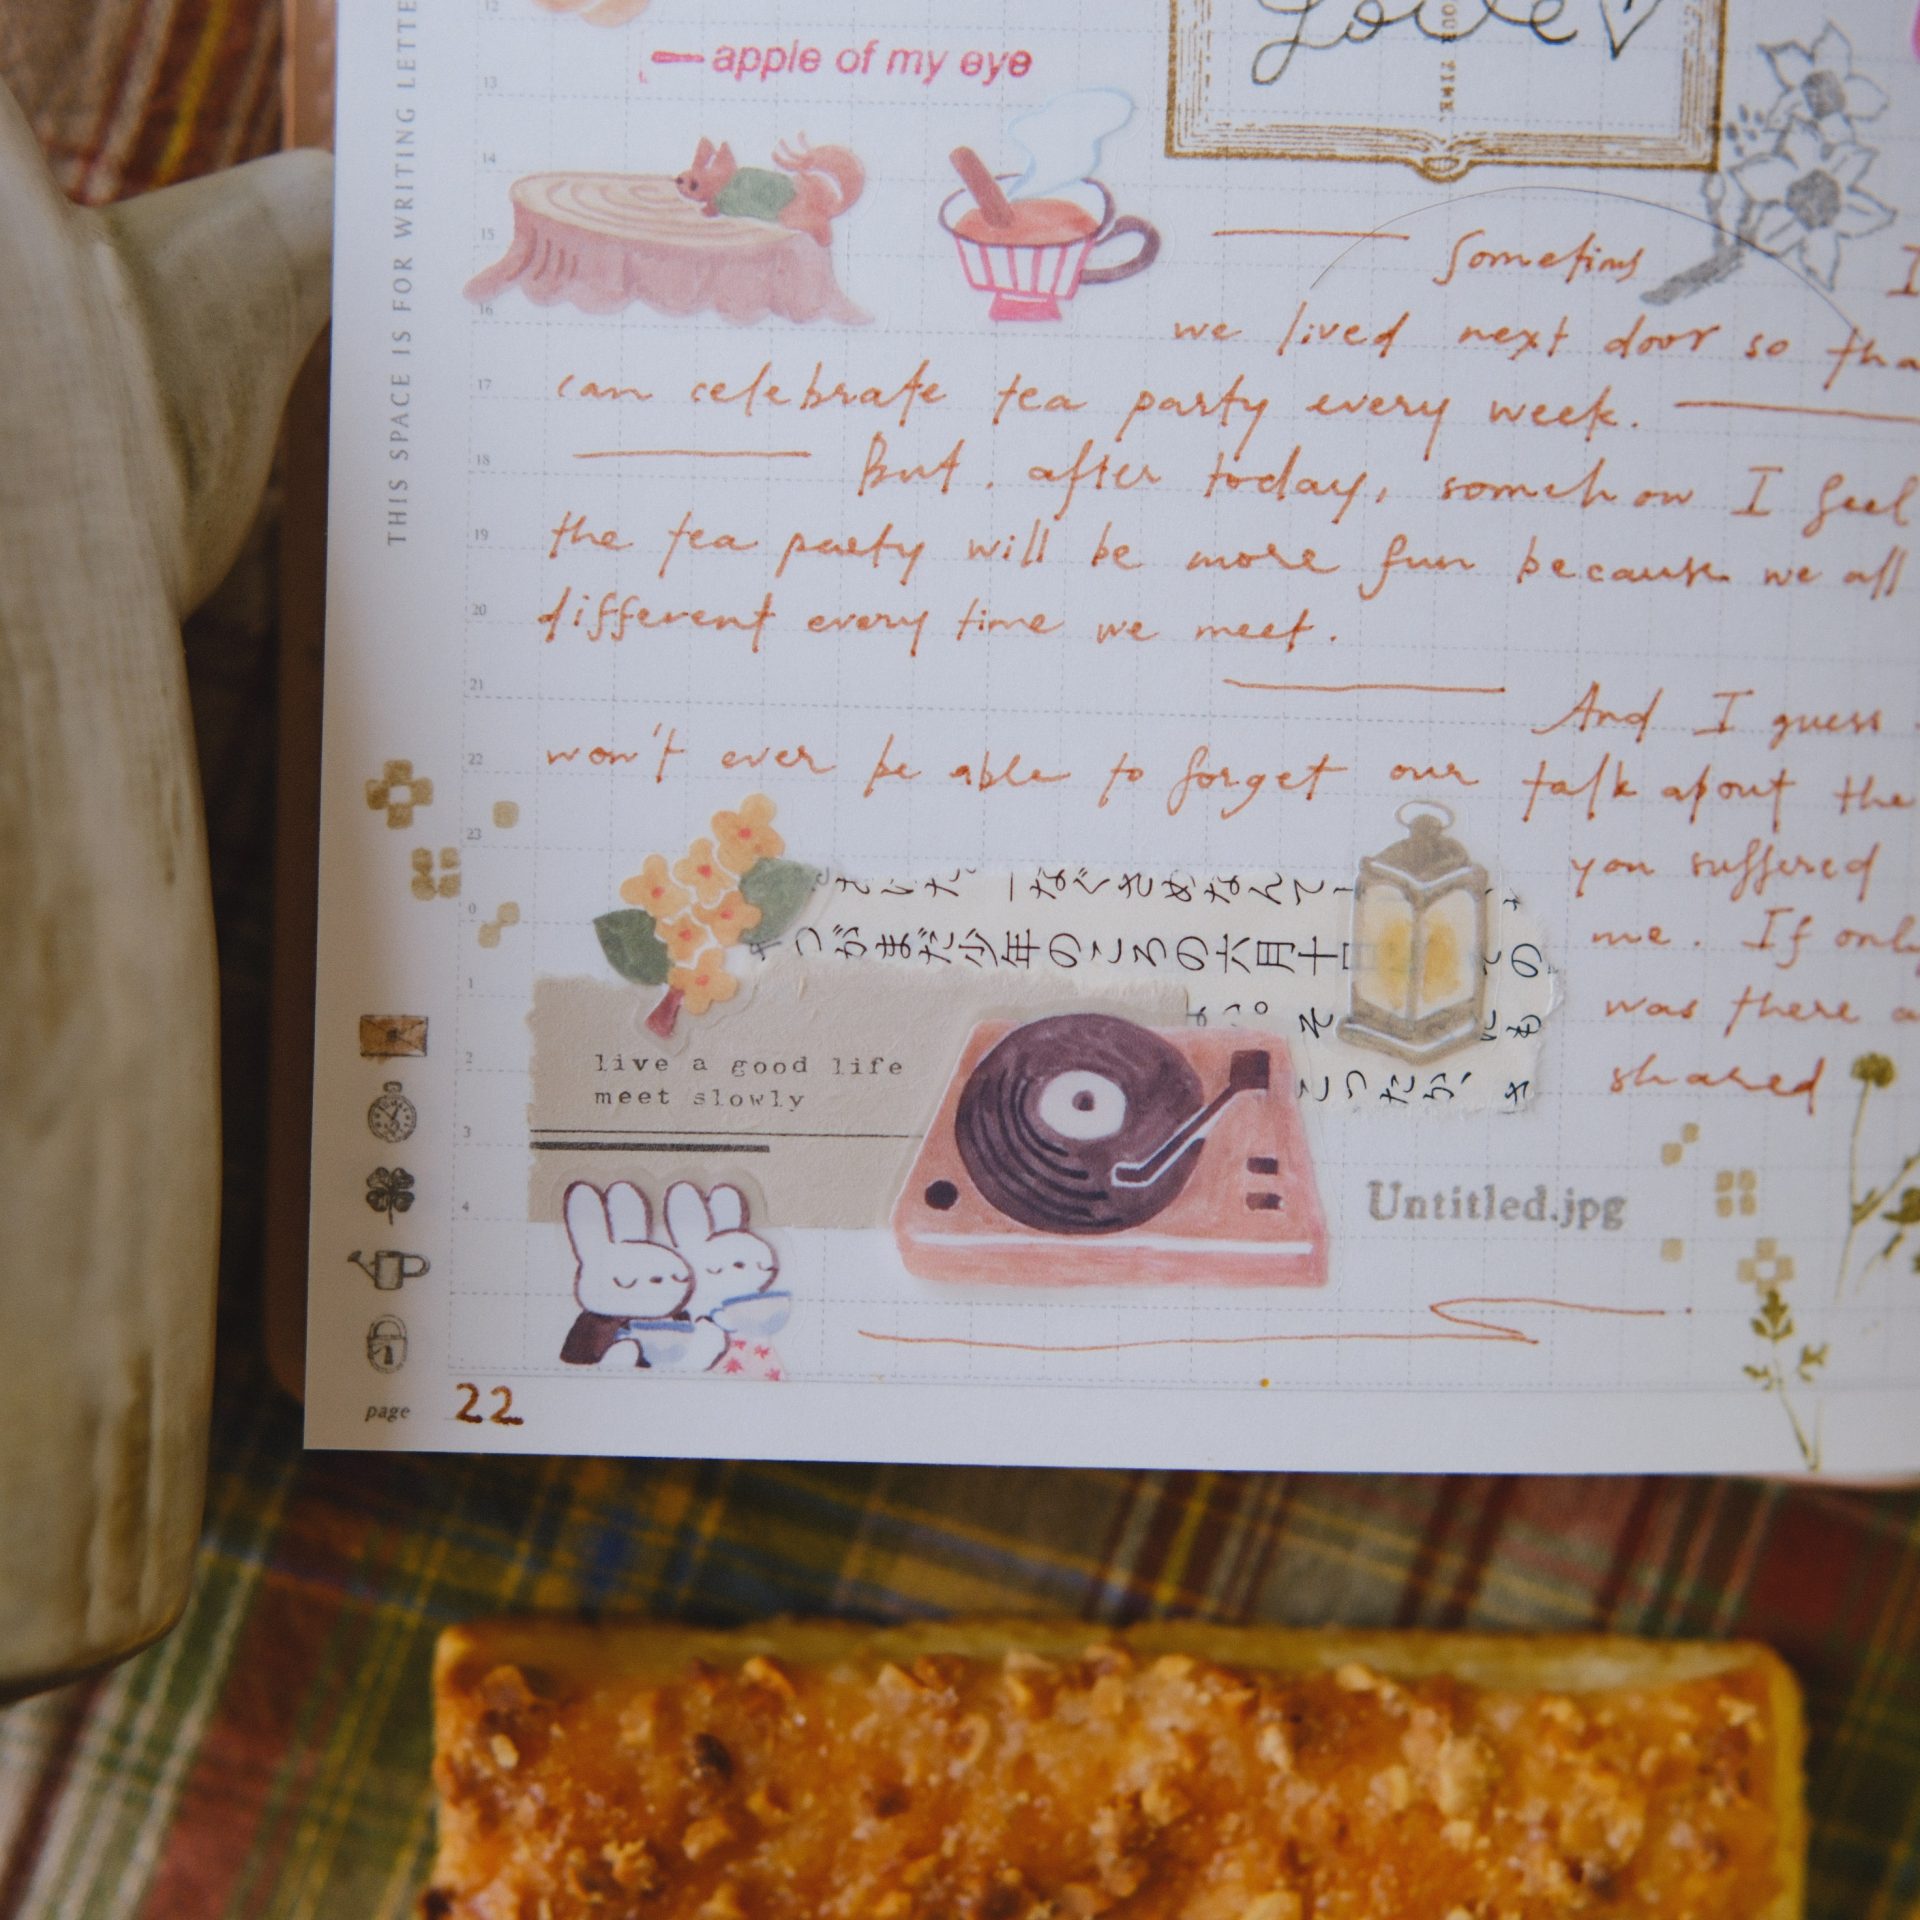 Love
YOUR TIME.
apple of my eye
THIS SPACE IS FOR WRITING LETTE
12
13
14
15
16
17
18
19
20
21
22
23
0
1
2
3
4
Sometims I
we lived next door so tha
can celebrate tea party every week.
But, after today, somehow I feel
the tea party will be more fun because we all
different every time we meet.
And I guess
won't ever be able to forget our talk about the
you suffered
me. If only
was there a
shared
さいた。一なべさめなんて
つがまだ少年のころの六月十
の
そ
にも
こつたか、
live a good life
meet slowly
Untitled.jpg
page 22